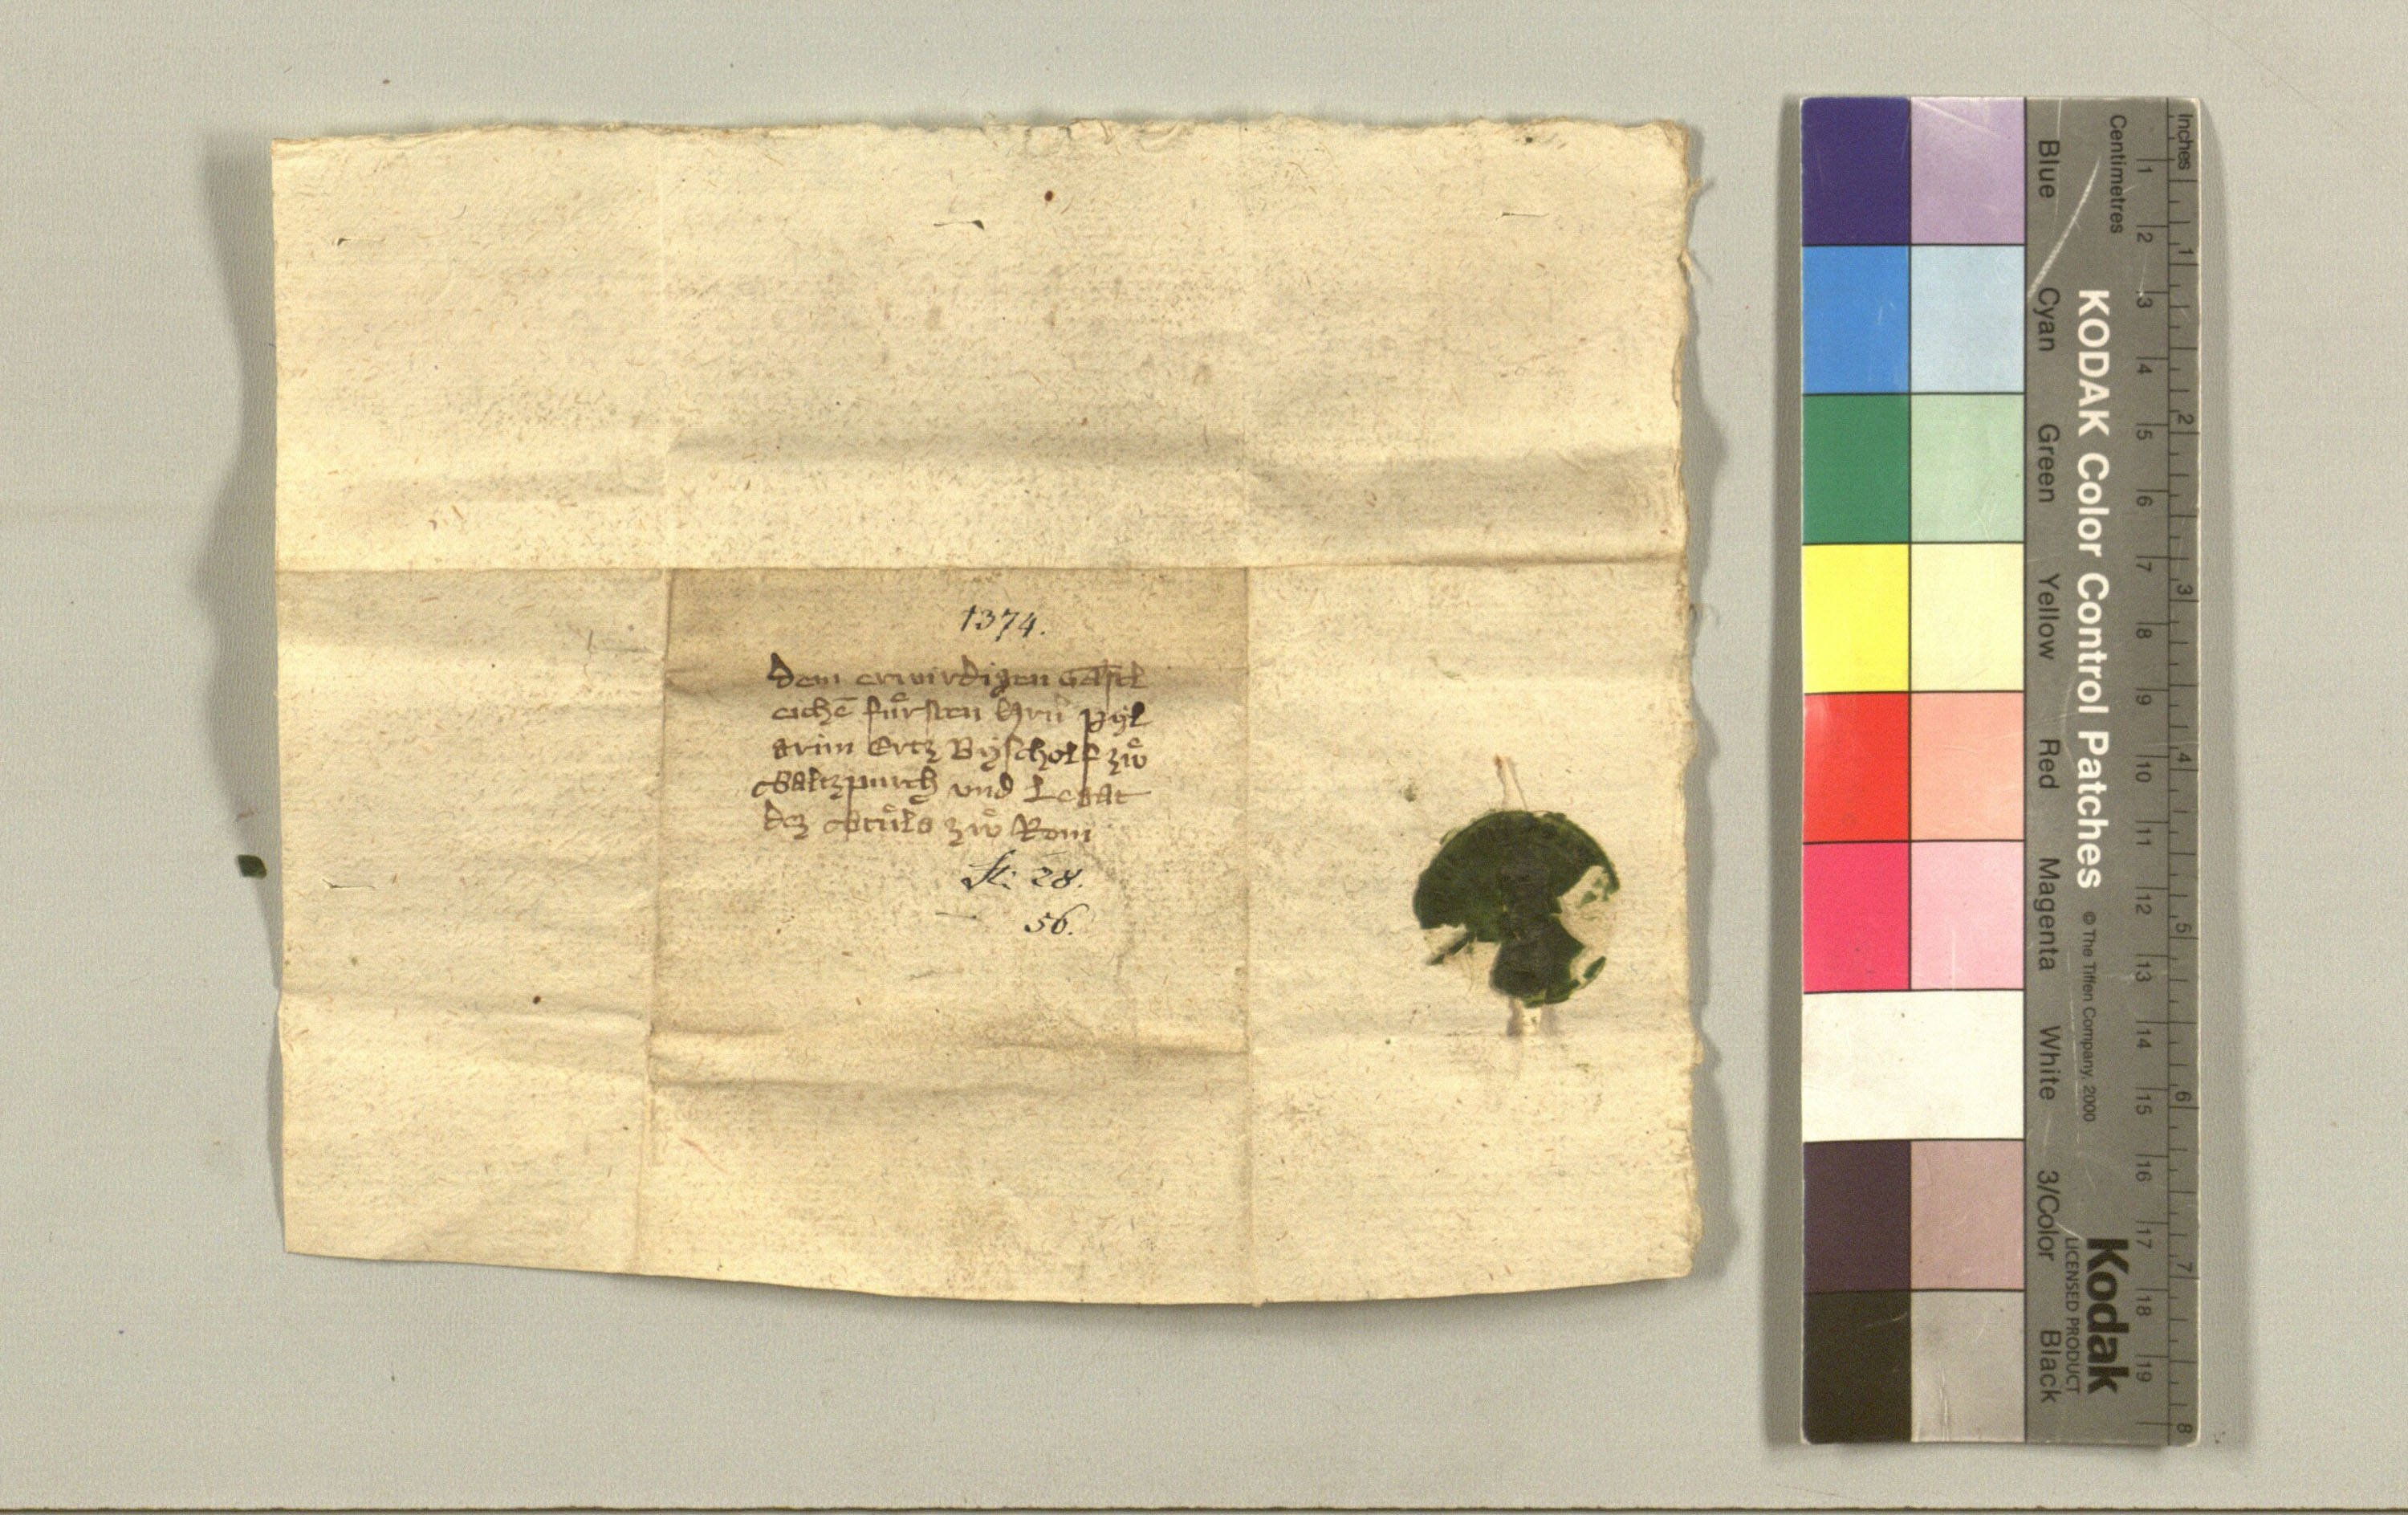 1374.
Dem erwirdigen Gaſtl
eichē fuͤrſten Hrn̄ pyl
grim Ertz Byſcholf zwͦ
Saltzpurch vnd Legat
dez Stuͤls zwͦ Rom
St: 28.
56.
Inches
Centimetres
1 2 3 4 5 6 7 8
1 2 3 4 5 6 7 8 9 10 11 12 13 14 15 16 17 18 19
KODAK Color Control Patches © The Tiffen Company, 2000
Kodak
LICENSED PRODUCT
Blue Cyan Green Yellow Red Magenta White 3/Color Black